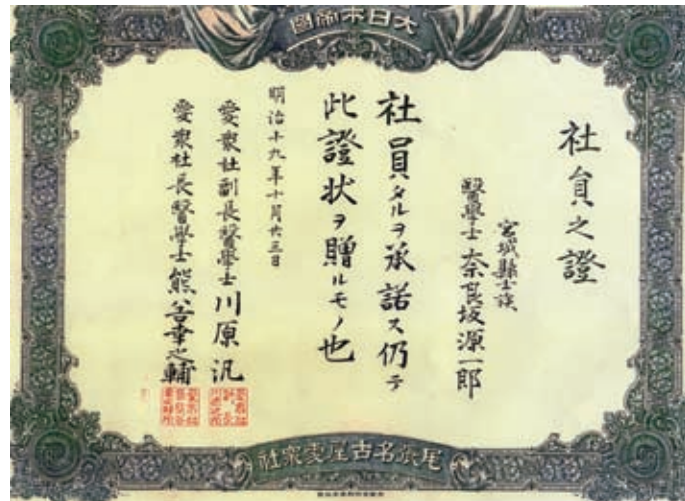 大日本帝國
社員之證
宮城縣士族
醫學士 奈良坂源一郎
社員タルヲ承諾ス仍テ
此證状ヲ贈ルモノ也
明治十九年十月廿三日
愛衆社副長醫學士 川原汎
愛衆社長醫學士 熊谷幸之輔
尾張名古屋愛衆社